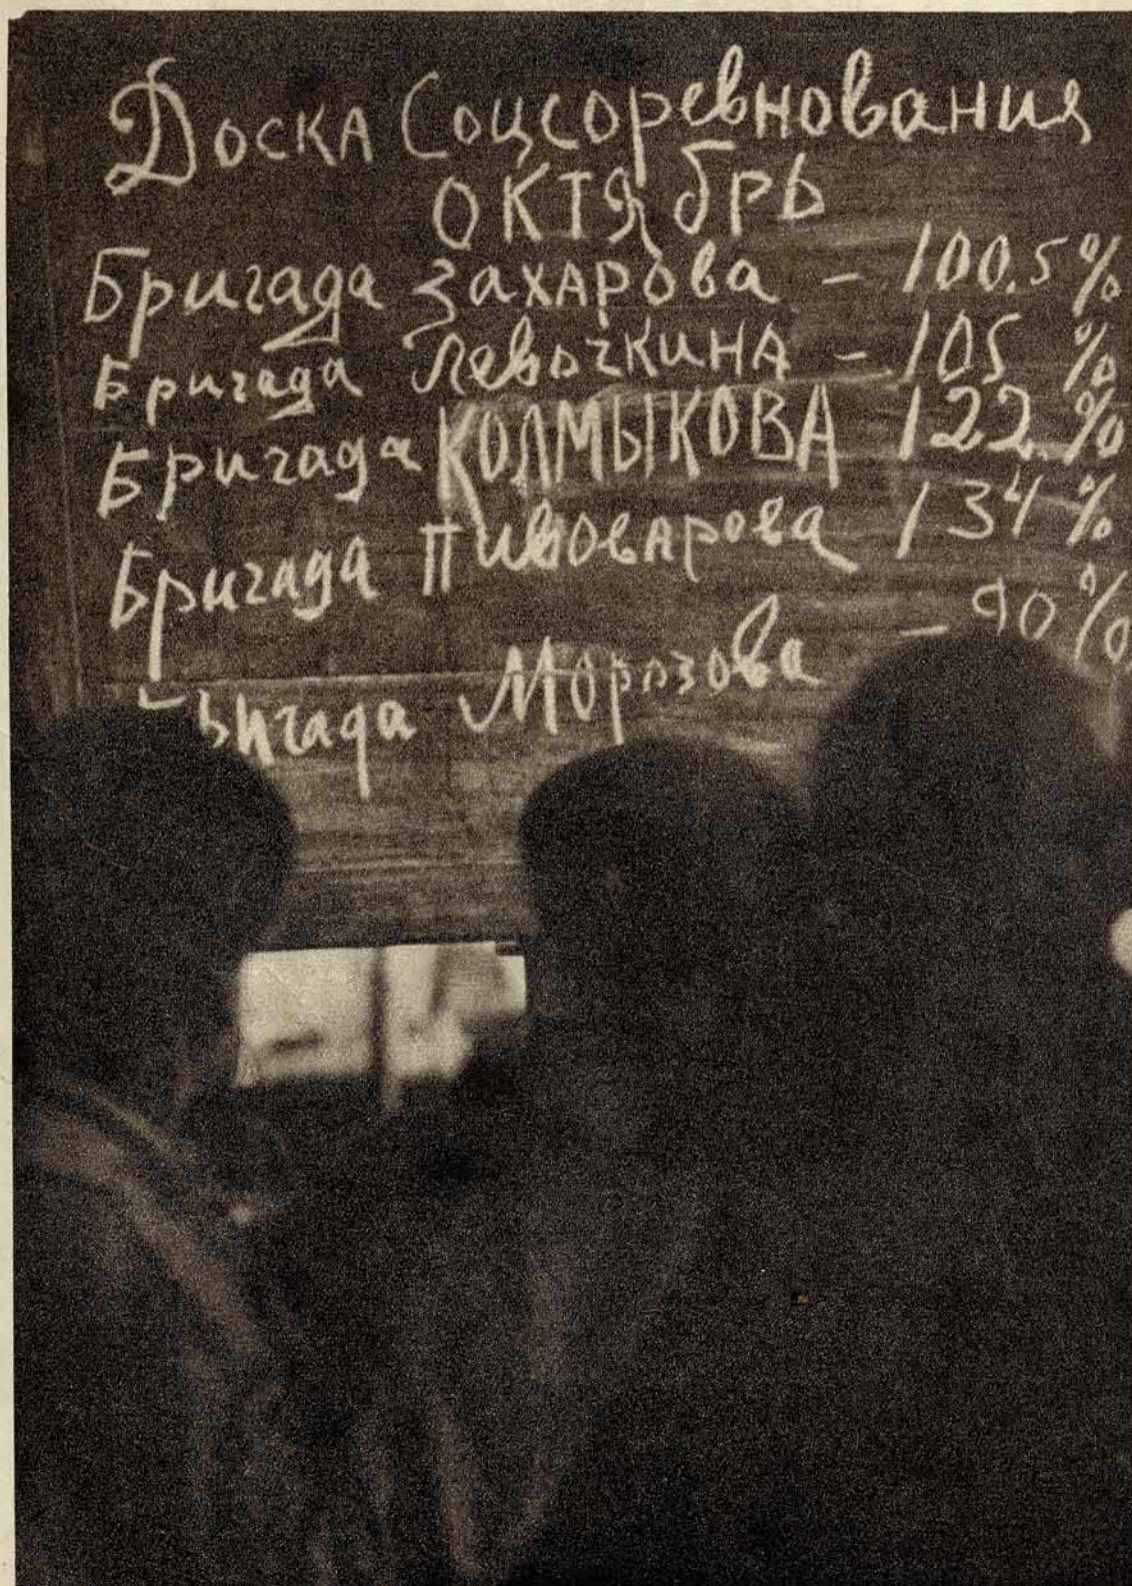 Доска Соцсоревнования
ОКТЯбРЬ
Бригада Захарова – 100.5%
Бригада Левочкина – 105 %
Бригада КОЛМЫКОВА 122%
Бригада Пивоварова 134%
Бригада Морозова – 90%